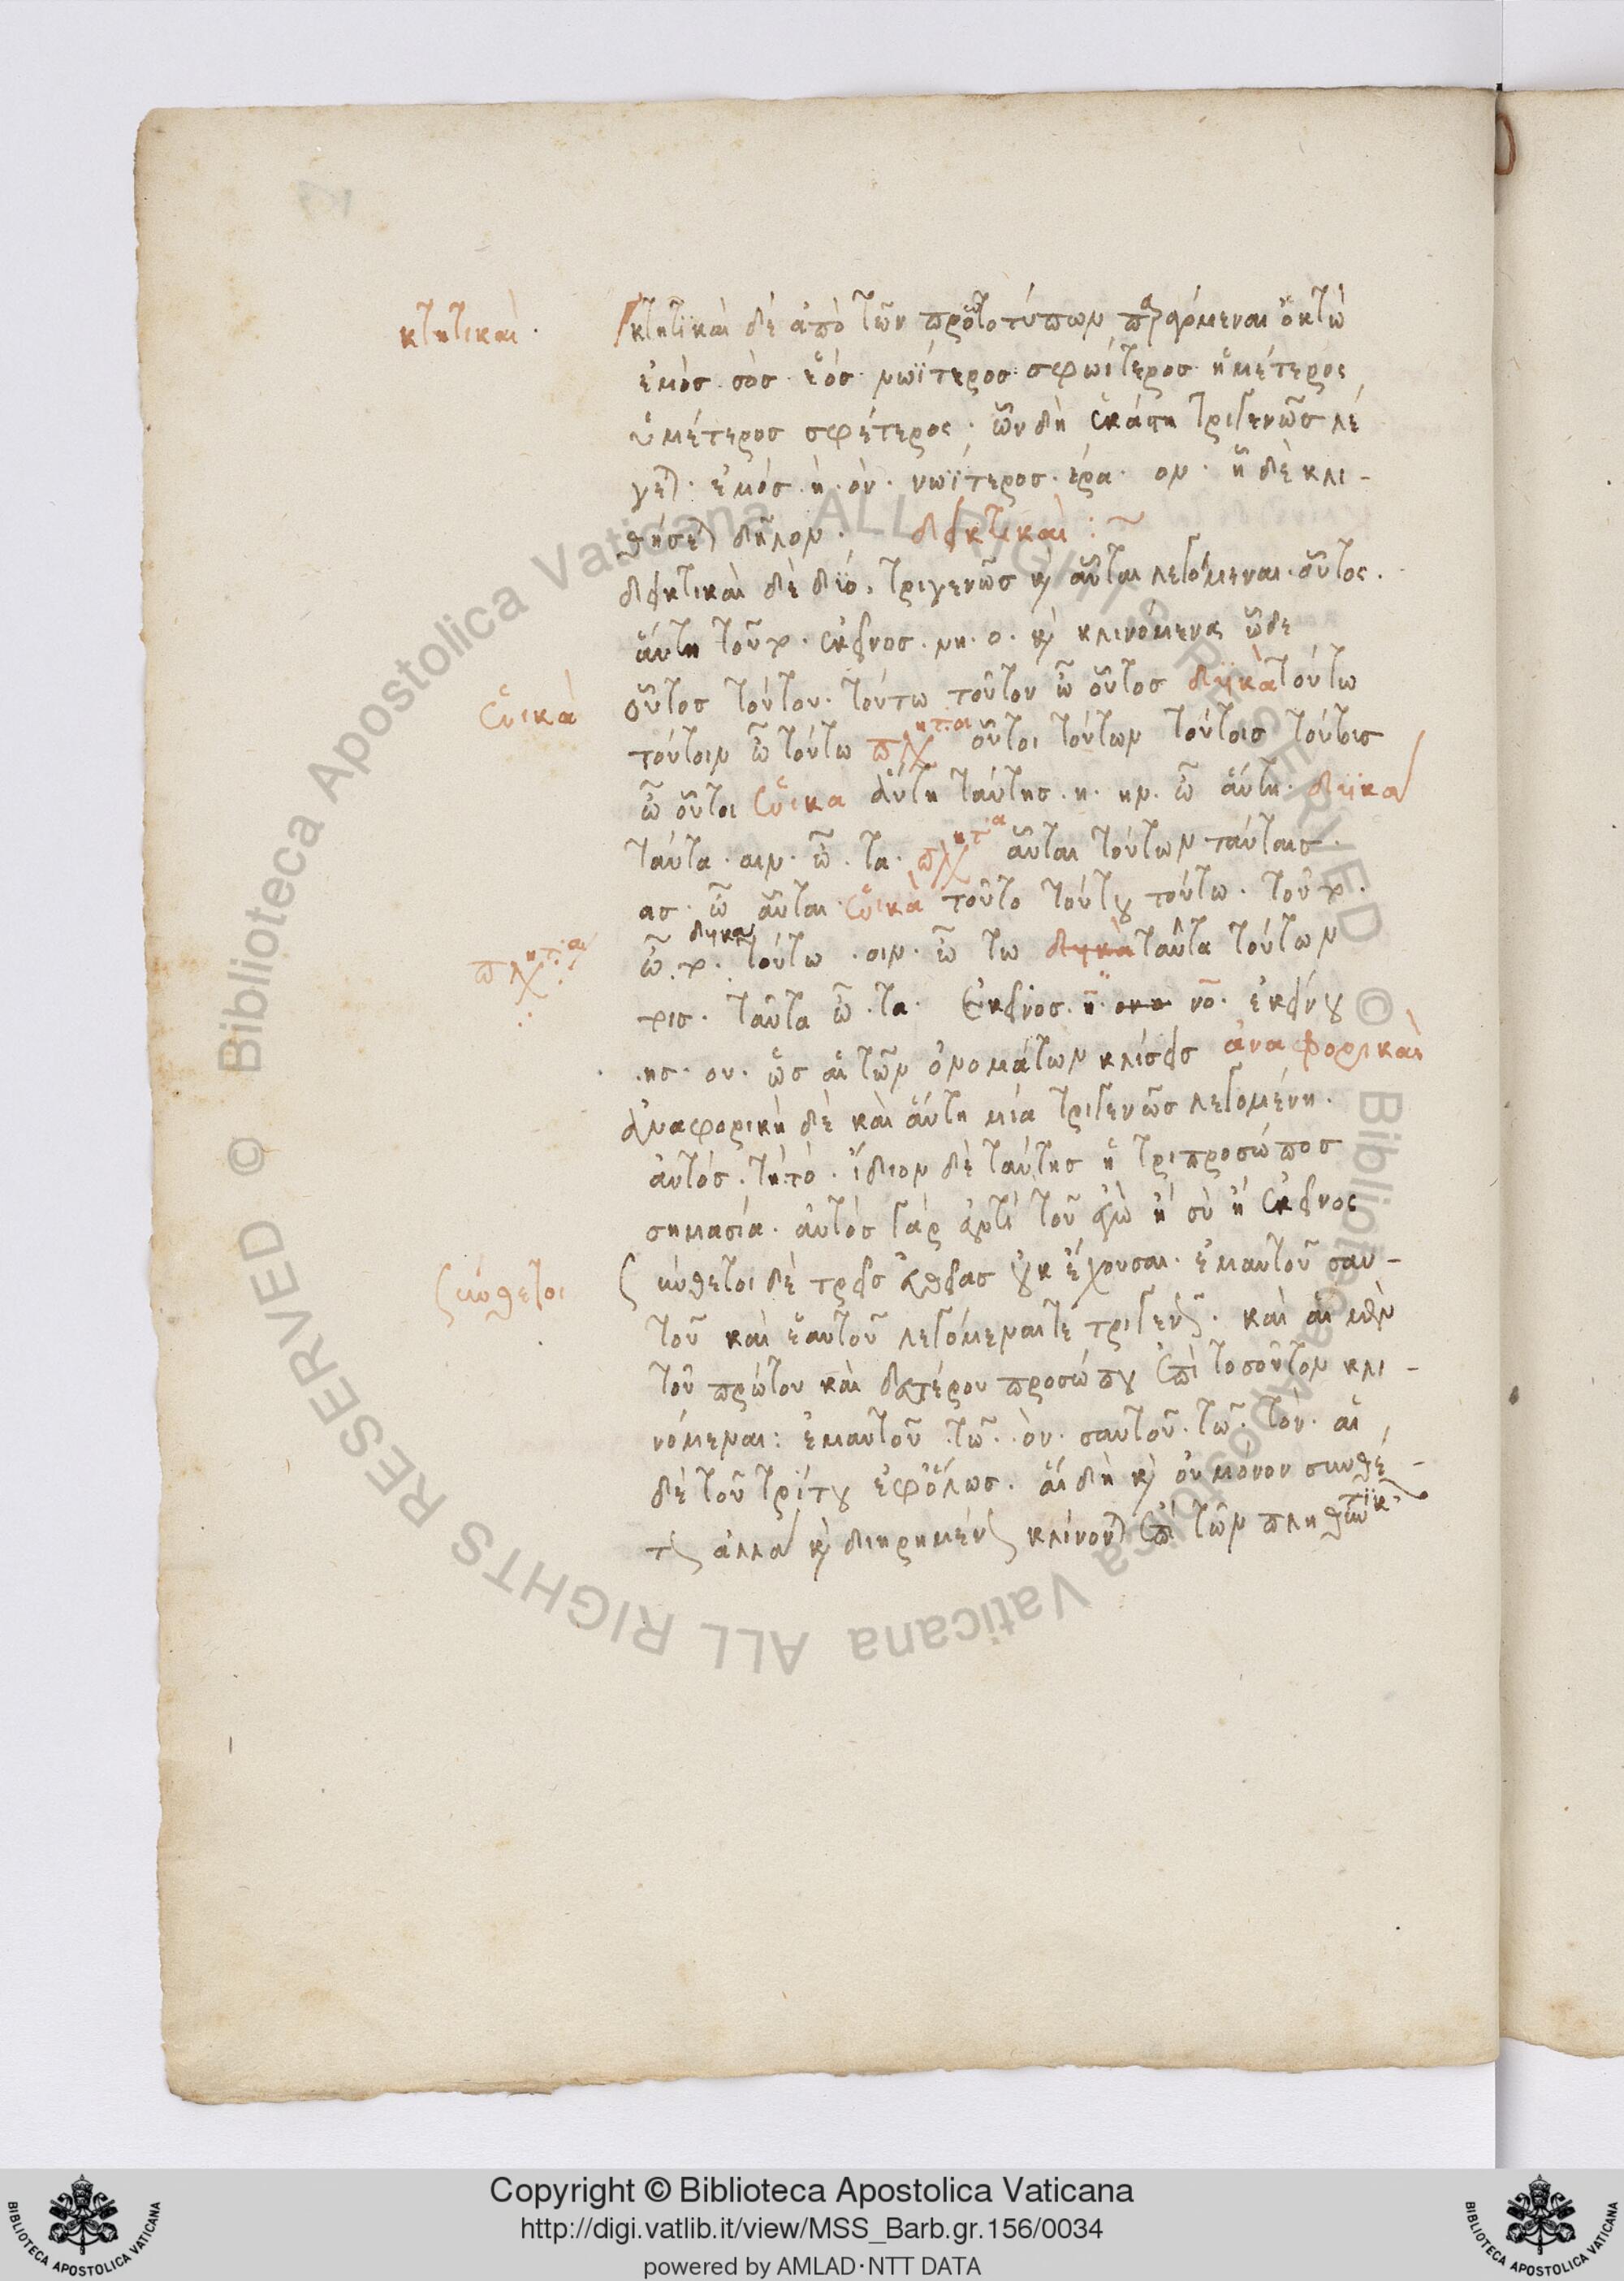 κτητικαί·
κτητικαὶ δὲ ἀπὸ τῶν πρωτοτύπων παραγόμεναι ὀκτὼ
ἐμὸσ· σὸσ· ἑός· νωΐτεροσ· σφωίτεροσ· ἡμέτερος
ὑμέτεροσ σφέτερος· ὧν δὴ ἑκάστη τριγενῶσ λέ
γεται· ἐμός· ἡ· ὸν· νωΐτεροσ· έρα· ον· ἣ δὲ κλι-
θήσεται δῆλον· δεικτικαὶ:~
δεικτικαὶ δὲ δύο· τριγενῶσ καὶ αὗται λεγόμεναι· οὗτος·
αὕτη τοῦτο· ἐκεῖνοσ· νη· ο· καὶ κλινόμεναι ὧδε
ἑνικὰ
οὗτοσ τούτου· τούτω τοῦτον ὦ οὗτοσ δυϊκὰ τούτω
τούτοιν ὦ τούτω πληθυντικὰ οὗτοι τούτων τούτοισ τούτουσ
ὦ οὗτοι ἑνικα αὕτη ταύτησ· η· ην· ὦ αὕτη· δυϊκα
ταύτα· αιν· ὦ· τα· πληθυντικὰ αὗται τούτων ταύταισ·
ασ· ὦ αὗται· ἑνικὰ τοῦτο τούτου τούτω· τοῦτο·
πληθυντικὰ
ὦ· το· δυικα τούτω· οιν· ὦ τω δυικὰ ταῦτα τούτων
τοισ· ταῦτα ὦ· τα· ἐκεῖνοσ· η· νο· ἐκείνου
·ησ· ου· ὡσ αἱ τῶν ὀνομάτων κλίσεισ ἀναφορικαὶ
ἀναφορικὴ δὲ καὶ αὕτη μία τριγενῶσ λεγομένη·
αὐτόσ· τὴ· τό· ἴδιον δὲ ταύτησ ἡ τριπροσώποσ
σημασία· αὐτὸσ γὰρ ἀντὶ τοῦ ἐγὼ ἢ σὺ ἢ ἐκεῖνος
σύνθετοι
σύνθετοι δὲ τρεῖσ εὐθείασ οὐκ ἔχουσαι· ἐμαυτοῦ σαυ-
τοῦ καὶ ἑαυτοῦ λεγόμεναί τε τριγενῶς· καὶ αἱ μὲν
τοῦ πρώτου καὶ δευτέρου προσώπου ἐπὶ τοσοῦτον κλι-
νόμεναι: ἐμαυτοῦ· τῶ· ὸν· σαυτοῦ· τῶ· τόν· αἱ
δὲ τοῦ τρίτου ἐφόλωσ· αἳ δὴ καὶ οὐ μόνον συνθέ-
τως ἀλλὰ καὶ διηρημένως κλίνονται ἐπὶ τῶν πληθυντικ